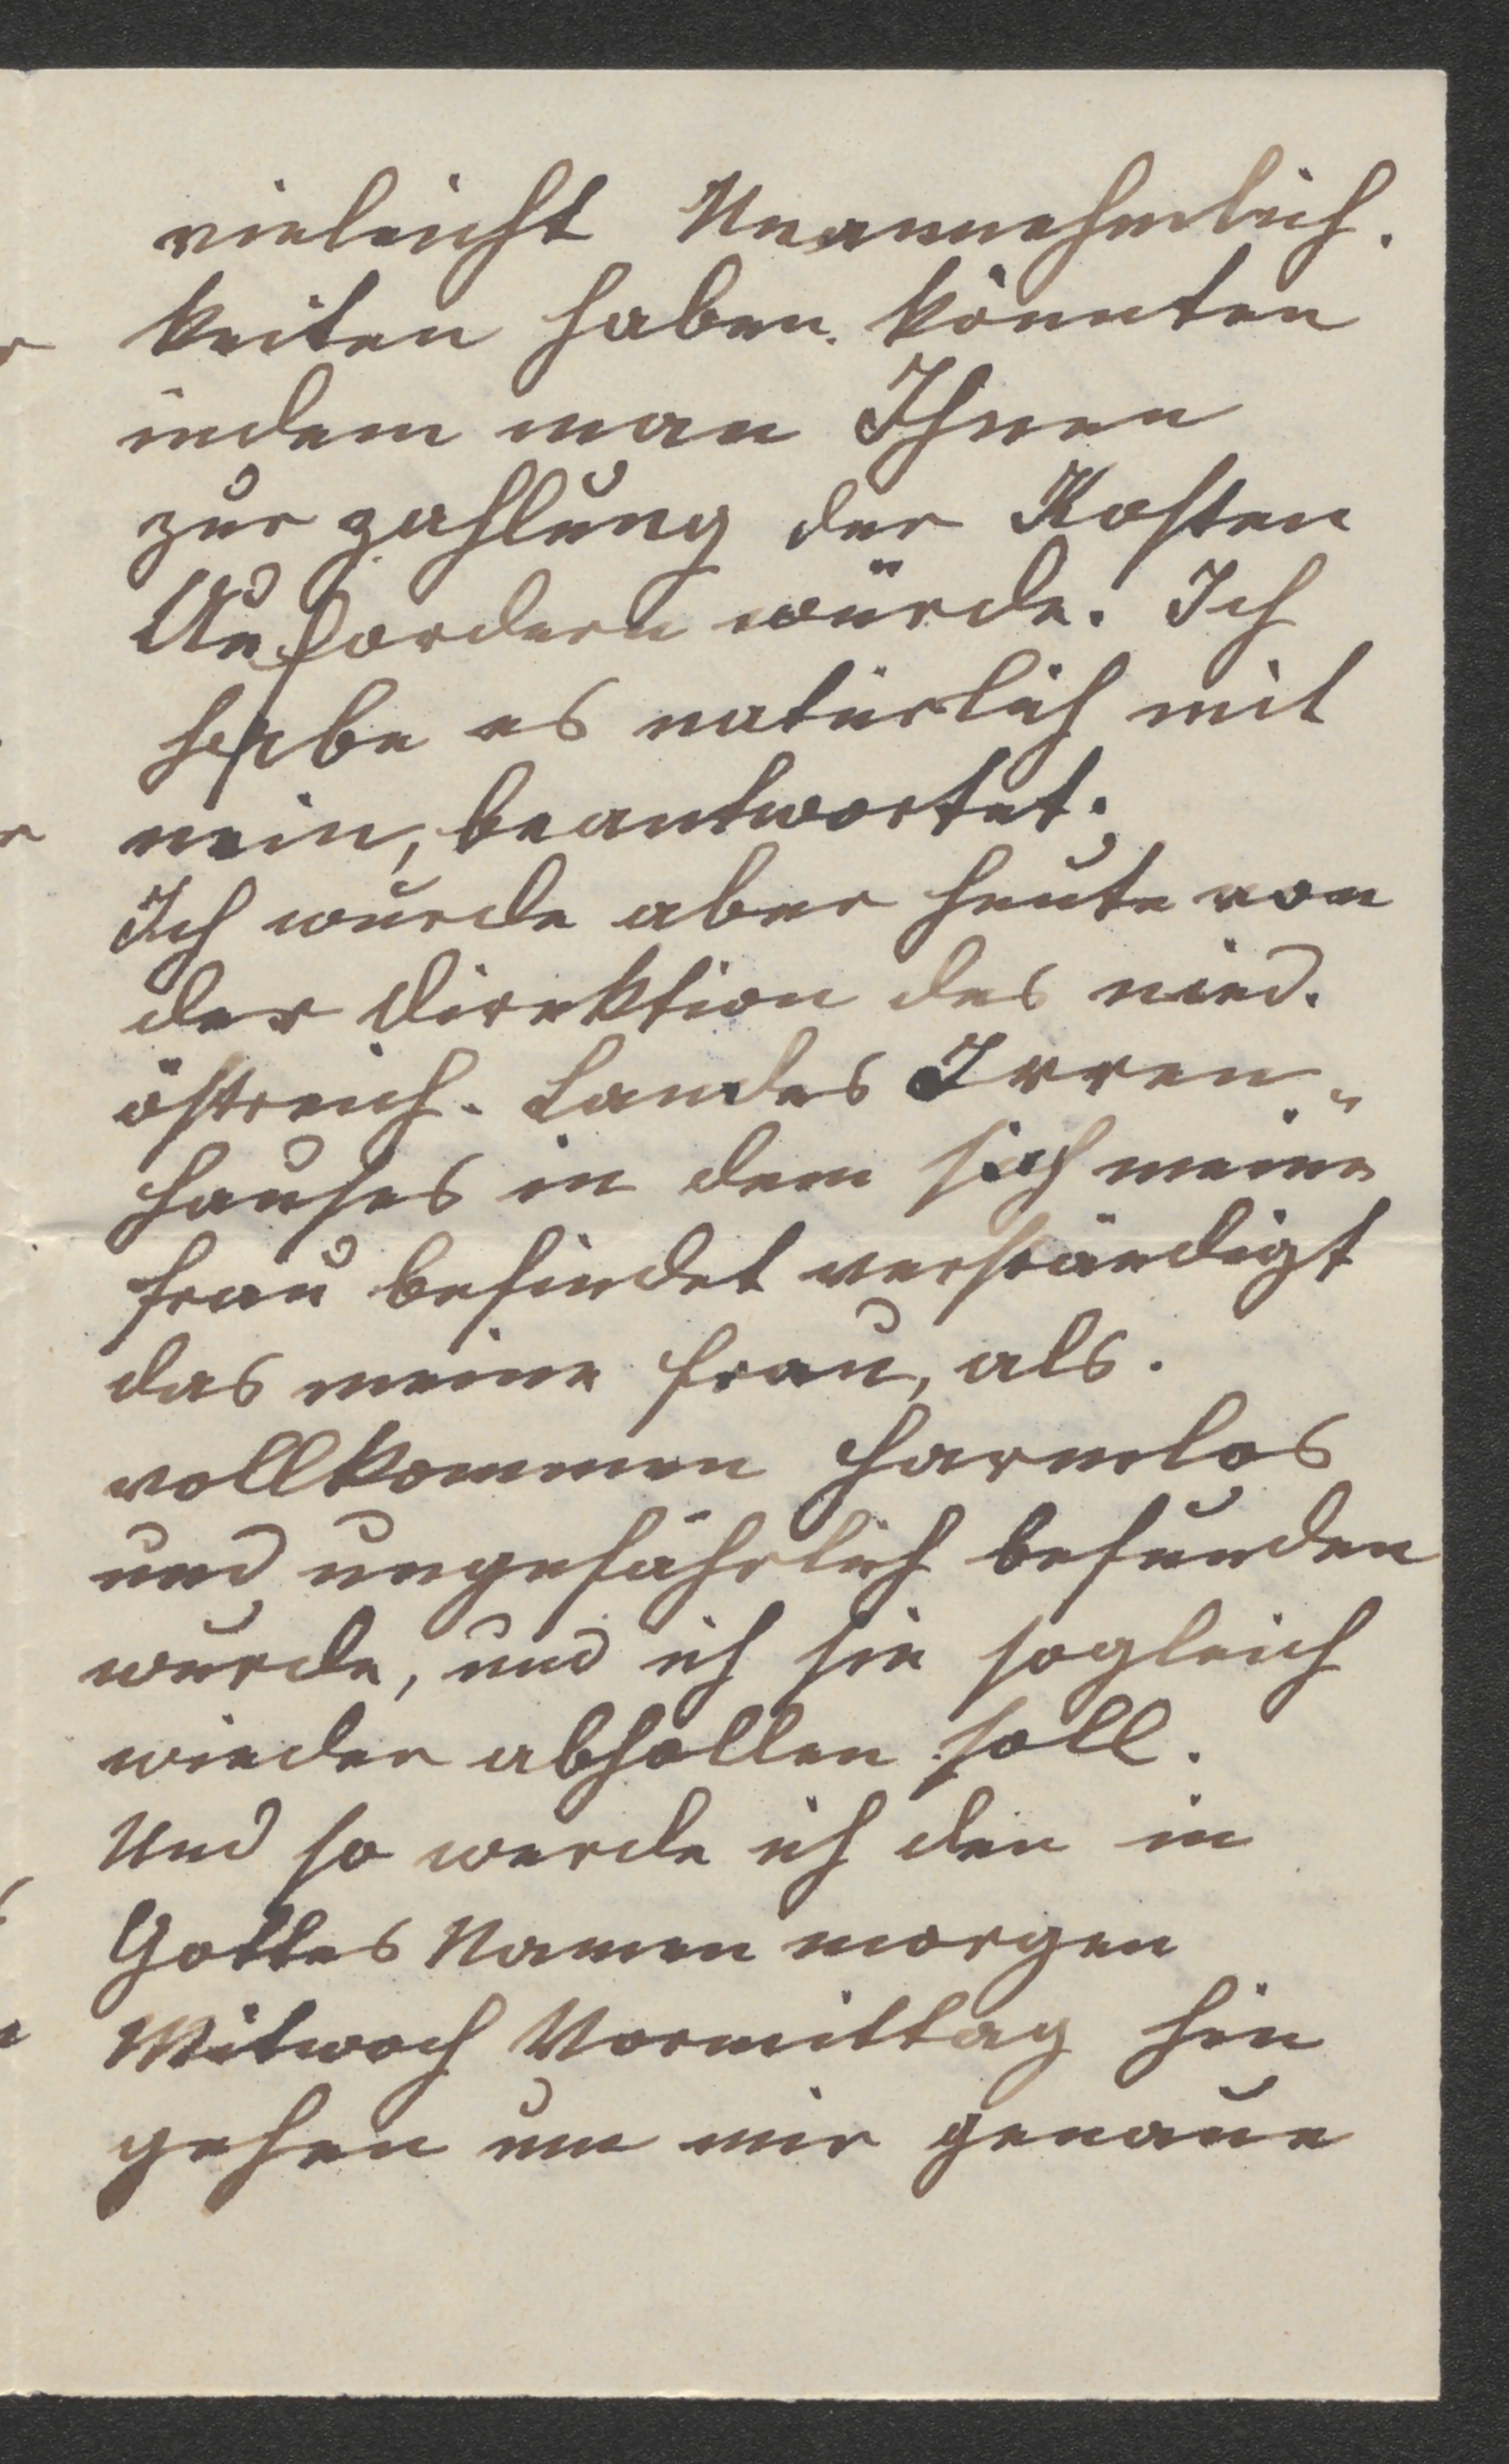 vieleicht Unannehmlich.
keiten haben könnten
indem man Ihnen
zur zahlung der Kosten
Aufordern würde. Ich
habe es natürlich mit
nein, beantwortet.
Ich wurde aber heute von
der Direktion des nied.
östreich. Landes Irren„
hauses in dem sich meine
Frau befindet verständigt
das meine Frau, als.
vollkommen harmlos
und ungefährlich befunden
wurde, und ich sie sogleich
wieder abhollen soll.
Und so werde ich den in
Gottes Namen morgen
Mitwoch Vormittag hin
gehen um mir genaue